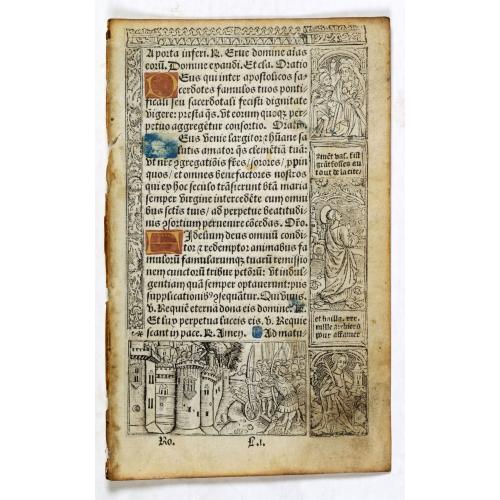 A porta inferi. R. Erue domine aīas
eorū. Domine exaudi. Et cla. Oratio
Deus qui inter apostolicos sa-
cerdotes famulos tuos ponti-
ficali seu sacerdotali fecisti dignitate
vigere: presta q̄s. vt eorum quoq; per-
petuo aggregētur consortio. Oratio.
Deus venie largitor ⁊ hūane sa-
lutis amator q̄s clemētiā tuā:
vt nr̄e ɔgregatiōis fr̄es/ sorores/ ꝓpin
quos/ et omnes benefactores nostros
qui ex hoc seculo trāsierunt btā maria
semper virgine intercedēte cum omni
bus sctīs tuis/ ad perpetue beatitudi
nis ɔsortium peruenire cōcedas. Oro.
Fidelium deus omniū condi
tor ⁊ redemptor animabus fa
mulorū famularumq; tuarū remissio
nem cunctorum tribue pctōrū: vt indul-
gentiam quā semper optauerunt: piis
supplicationibꝰ ɔsequātur. Qui viuis.
v. Requiē eterna dona eis domine. R.
Et lux perpetua luceis eis. v. Requie
scant in pace. R. Amen. Ad matu-
grās fosses au
tour de la cite
et bailla
mille archiers
pour assainer
Ro.
L.i.